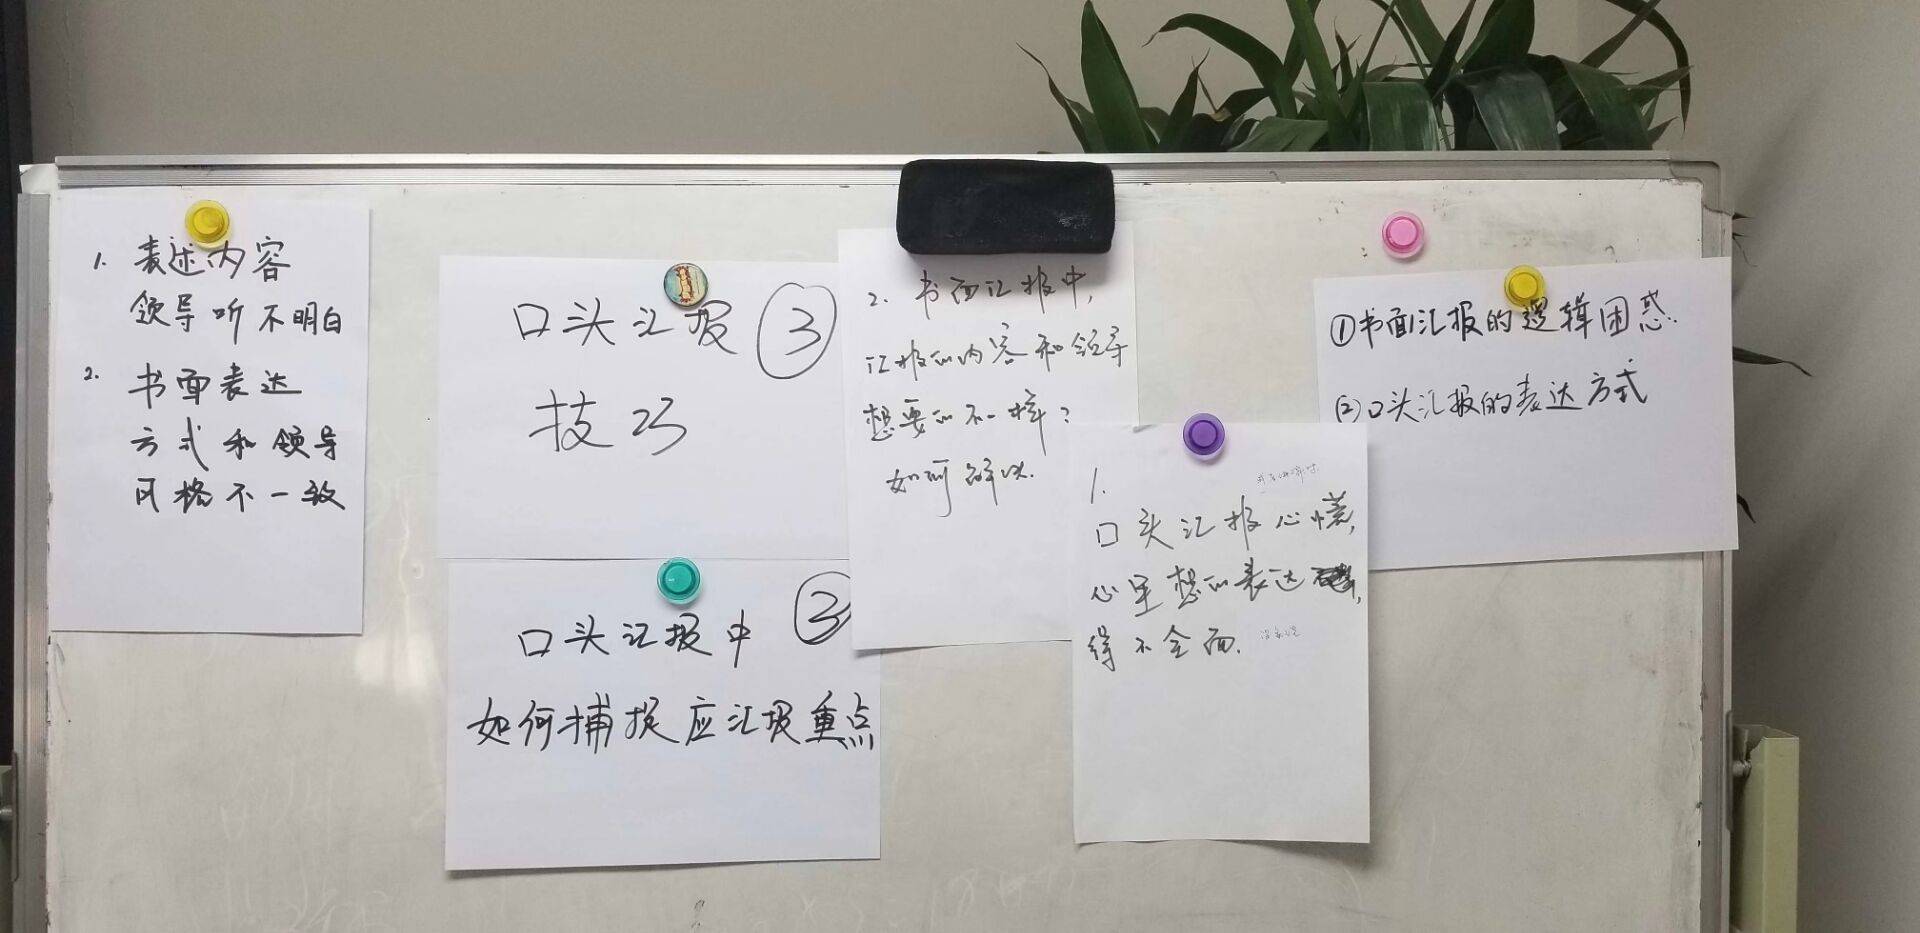 1. 表述内容
领导听不明白
2. 书面表达
方式和领导
风格不一致
口头汇报 ③
技巧
口头汇报中 ③
如何捕捉应汇报重点
2. 书面汇报中,
汇报的内容和领导
想要的不一样?
如何解决.
1.
口头汇报心慌,
心里想的表达
得不全面.
①书面汇报的逻辑困惑.
②口头汇报的表达方式